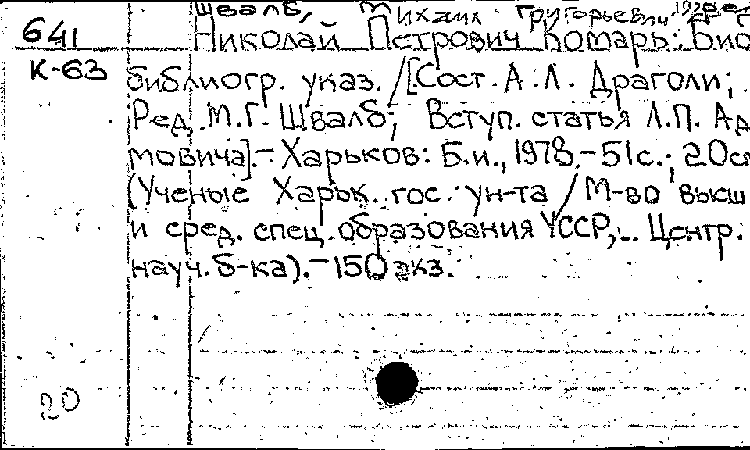 Швалб, Михаил Григорьевич
641 Николай Петрович Комарь: Био
К-63 библиогр. указ. /[Сост. А.Л. Драголи;
Ред. М.Г. Швалб; Вступ. статья Л.П. Ад
мовича].- Харьков: Б.и., 1978.-51с.; 20см
(Ученые Харьк. гос. ун-та / М-во высш
и сред. спец. образования УССР,.. Центр.
науч. б-ка).-150 экз.
20